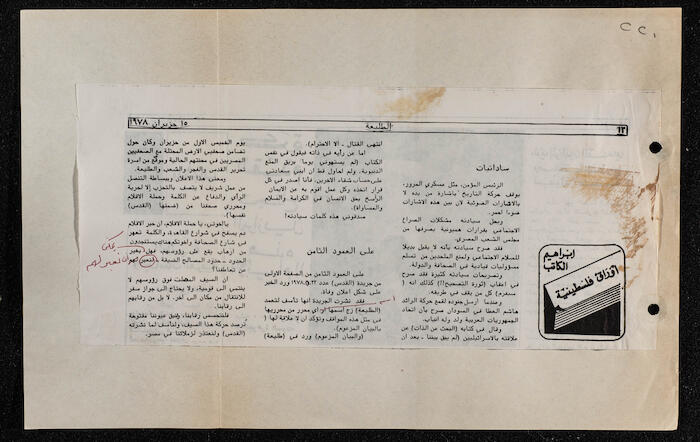 CC1
١٢
الطليعة
١٥ حزيران ١٩٧٨
ابراهيم
الكاتب
أوراق فلسطينية
ساداتيات
الرئيس المؤمن، مثل عسكري المرور،
يوقف حركة التاريخ باشارة من يده لا
بالاشارات الضوئية لان بين هذه الاشارات
ضوءا احمر.
وسيادته يحل مشكلات الصراع
الاجتماعي بقرارات همبونية يصرفها من
مجلس الشعب المصري.
فقد صرح سيادته بأنه لا يقبل بديلا
للسلام الاجتماعي ولمنع الملحدين من تسلم
مسؤوليات قيادية في الصحافة والدولة.
وتصريحات سيادته كثيرة فقد صرح
في أعقاب (ثورة التصحيح)!! كذلك انه (
سيفرم) كل من يقف في طريقه.
وعندما أرسل جنوده لقمع حركة الرائد
هاشم العطا في السودان صرح بأن اتحاد
الجمهوريات العربية ولد وله أنياب.
وقال في كتابه (البحث عن الذات) عن
علاقته بالاسرائيليين (لم يبق بيننا .. بعد ان
انتهى القتال ـ الا الاحترام).
اما عن رأيه في ذاته فيقول في نفس
الكتاب (لم يستهوني يوما بريق المتع
الدنيوية. ولم أحاول قط ان ابني سعادتي
على حساب شقاء الاخرين. فأنا اصدر في كل
قرار اتخذه وكل عمل اقوم به عن الايمان
الراسخ بحق الانسان في الكرامة والسلام
والمساواة).
صدقوني هذه كلمات سيادته!
على العمود الثامن
على العمود الثامن من الصفحة الاولى
من جريدة (القدس) عدد ٢٢ـ٥ـ١٩٧٨ ورد الخبر
على شكل اعلان وفاة.
فقد نشرت الجريدة انها تأسف لتعمد
(الطليعة) زج أسمها او أي محرر من محرريها
في مثل هذه المواقف وتؤكد ان لا علاقة لها (
بالبيان المزعوم).
(والبيان المزعوم) ورد في (طليعة)
يوم الخميس الاول من حزيران وكان حول
تضامن صحفيي الارض المحتلة مع الصحفيين
المصريين في محنتهم الحالية وموقع من اسرة
تحرير القدس والفجر والشعب والطليعة.
ومعنى هذا الاعلان وببساطة التنصل
من عمل شريف لا يتصف بالتحزب إلا لحرية
الرأي والدفاع عن الكلمة وحملة الاقلام
ومحرري صحفنا من ضمنها (القدس)
نفسها).
يا اخوتي، يا حملة الاقلام، ان حبر الاقلام
دم يسفح في شوارع القاهرة، والكلمة تعهر
في شارع الصحافة واخوتكم هناك يستنجدون
من ارهاب يقع على رؤوسهم، فهل يعبر
الحدود ـ حدود المصالح الضيقة
من تعاطفنا؟
ان السيف المصلت فوق رؤوسهم لا
ينتمي الى قومية، ولا يحتاج الى جواز سفر
للانتقال من مكان الى اخر. لا بل من رقابهم
الى رقابنا.
فلنتحسس رقابنا، ولتبق عيوننا مفتوحة
ترصد حركة هذا السيف، ولنأسف لما نشرته
(القدس) ولنعتذر لزملائنا في مصر.